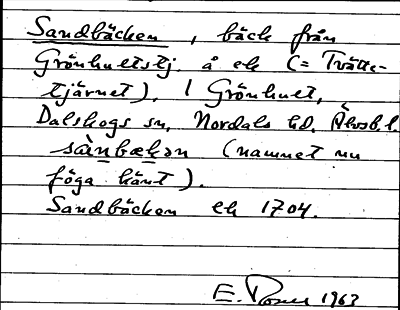 Sandbäcken, bäck från
Grönhultstj. å ek (= Tvätte-
tjärnet), i Grönhult,
Dalskogs sn, Nordals hd, Älvsb. l.
sànbækən (namnet nu
föga känt).
Sandbäcken ek 1704.
E. 1963